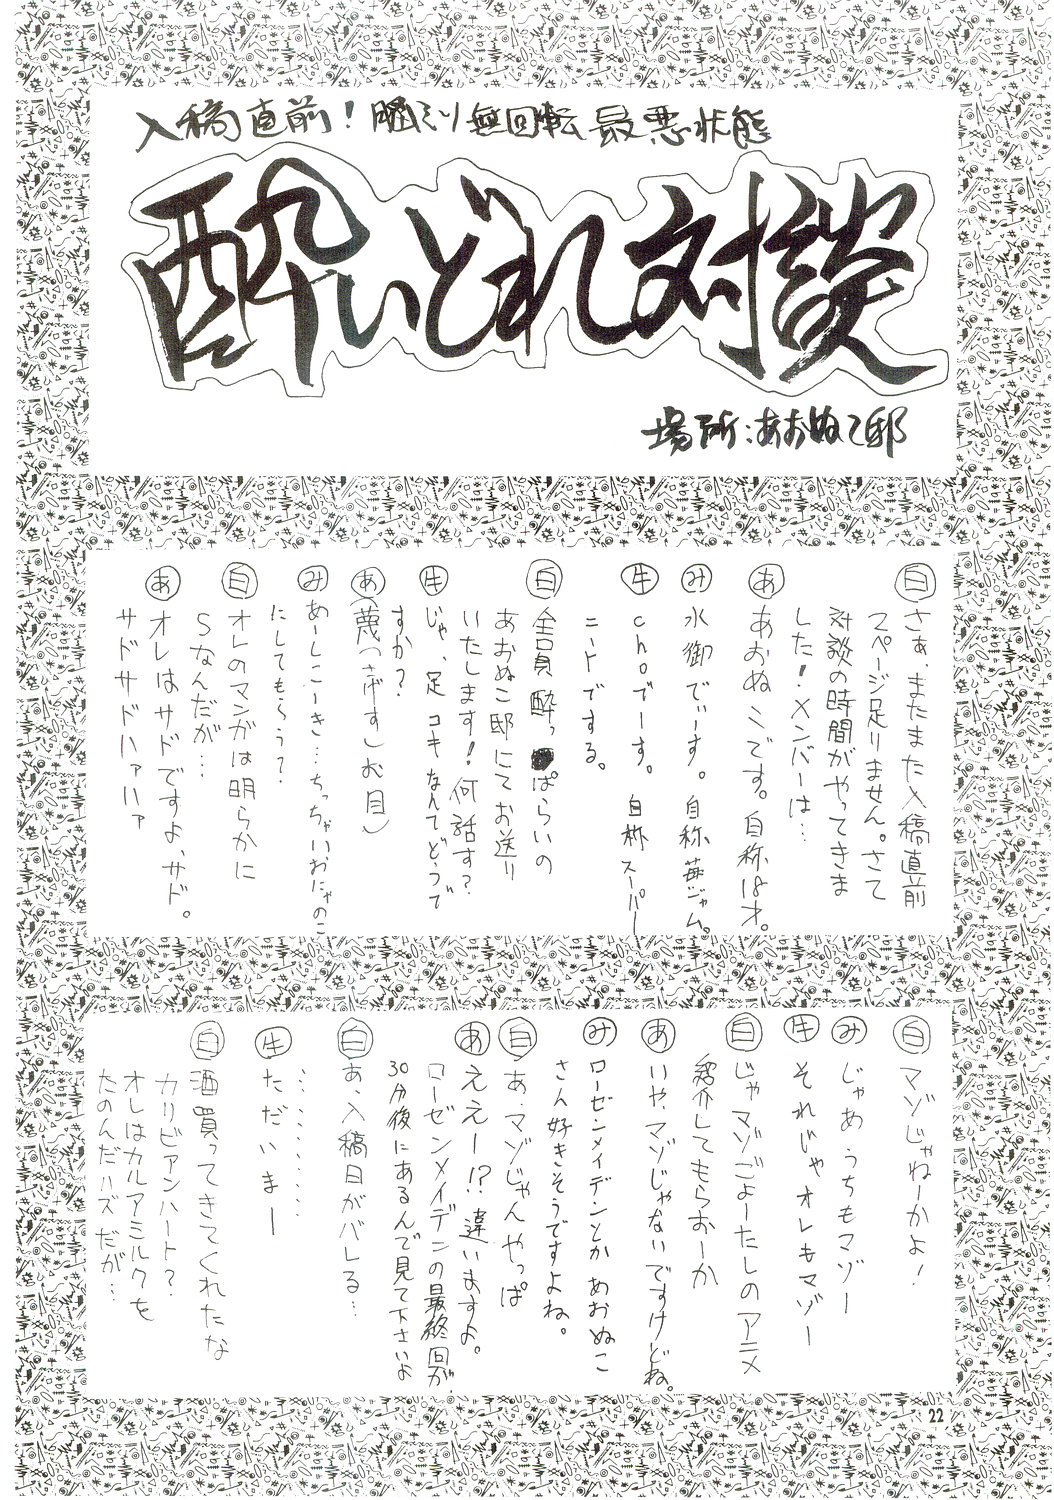 入稿直前！脳ミソ無回転最悪状態
酔いどれ対談
場所：あおぬこ邸
白 さぁ、またまた入稿直前
スページ足りません。さて
対談の時間がやってきま
した！メンバーは…
あ あおぬこです。自称18才。
み 水御でぃーす。自称苺ジャム。
牛 choでーす。自称スーパー
ニートでする。
白 全員酔っぱらいの
あおぬこ邸にてお送り
いたします！何話す？
牛 じゃ、足コキなんてどうで
すか？
あ （蔑っさげすしお目）
み めーしこーき…ちっちゃいおにゃのこ
にしてもらう？
白 オレのマンガは明らかに
Sなんだが…
あ オレはサドですよ、サド。
サドサドハァハァ
白 マゾじゃねーかよ！
み じゃあうちもマゾー
牛 それじゃオレもマゾー
白 じゃマゾごよーたしのアニメ
紹介してもらおーか
あ いや、マゾじゃないですけどね。
み ローゼンメイデンとかあおぬこ
さん好きそうですよね。
白 あ、マゾじゃんやっぱ
あ ええー!?違いますよ。
ローゼンメイデンの最終回が
30分後にあるんで見て下さいよ
白 あ、入稿日がバレる…
………
牛 ただいまー
白 酒買ってきてくれたな
カリビアンハート？
オレはカルアミルクを
たのんだハズだが…
22